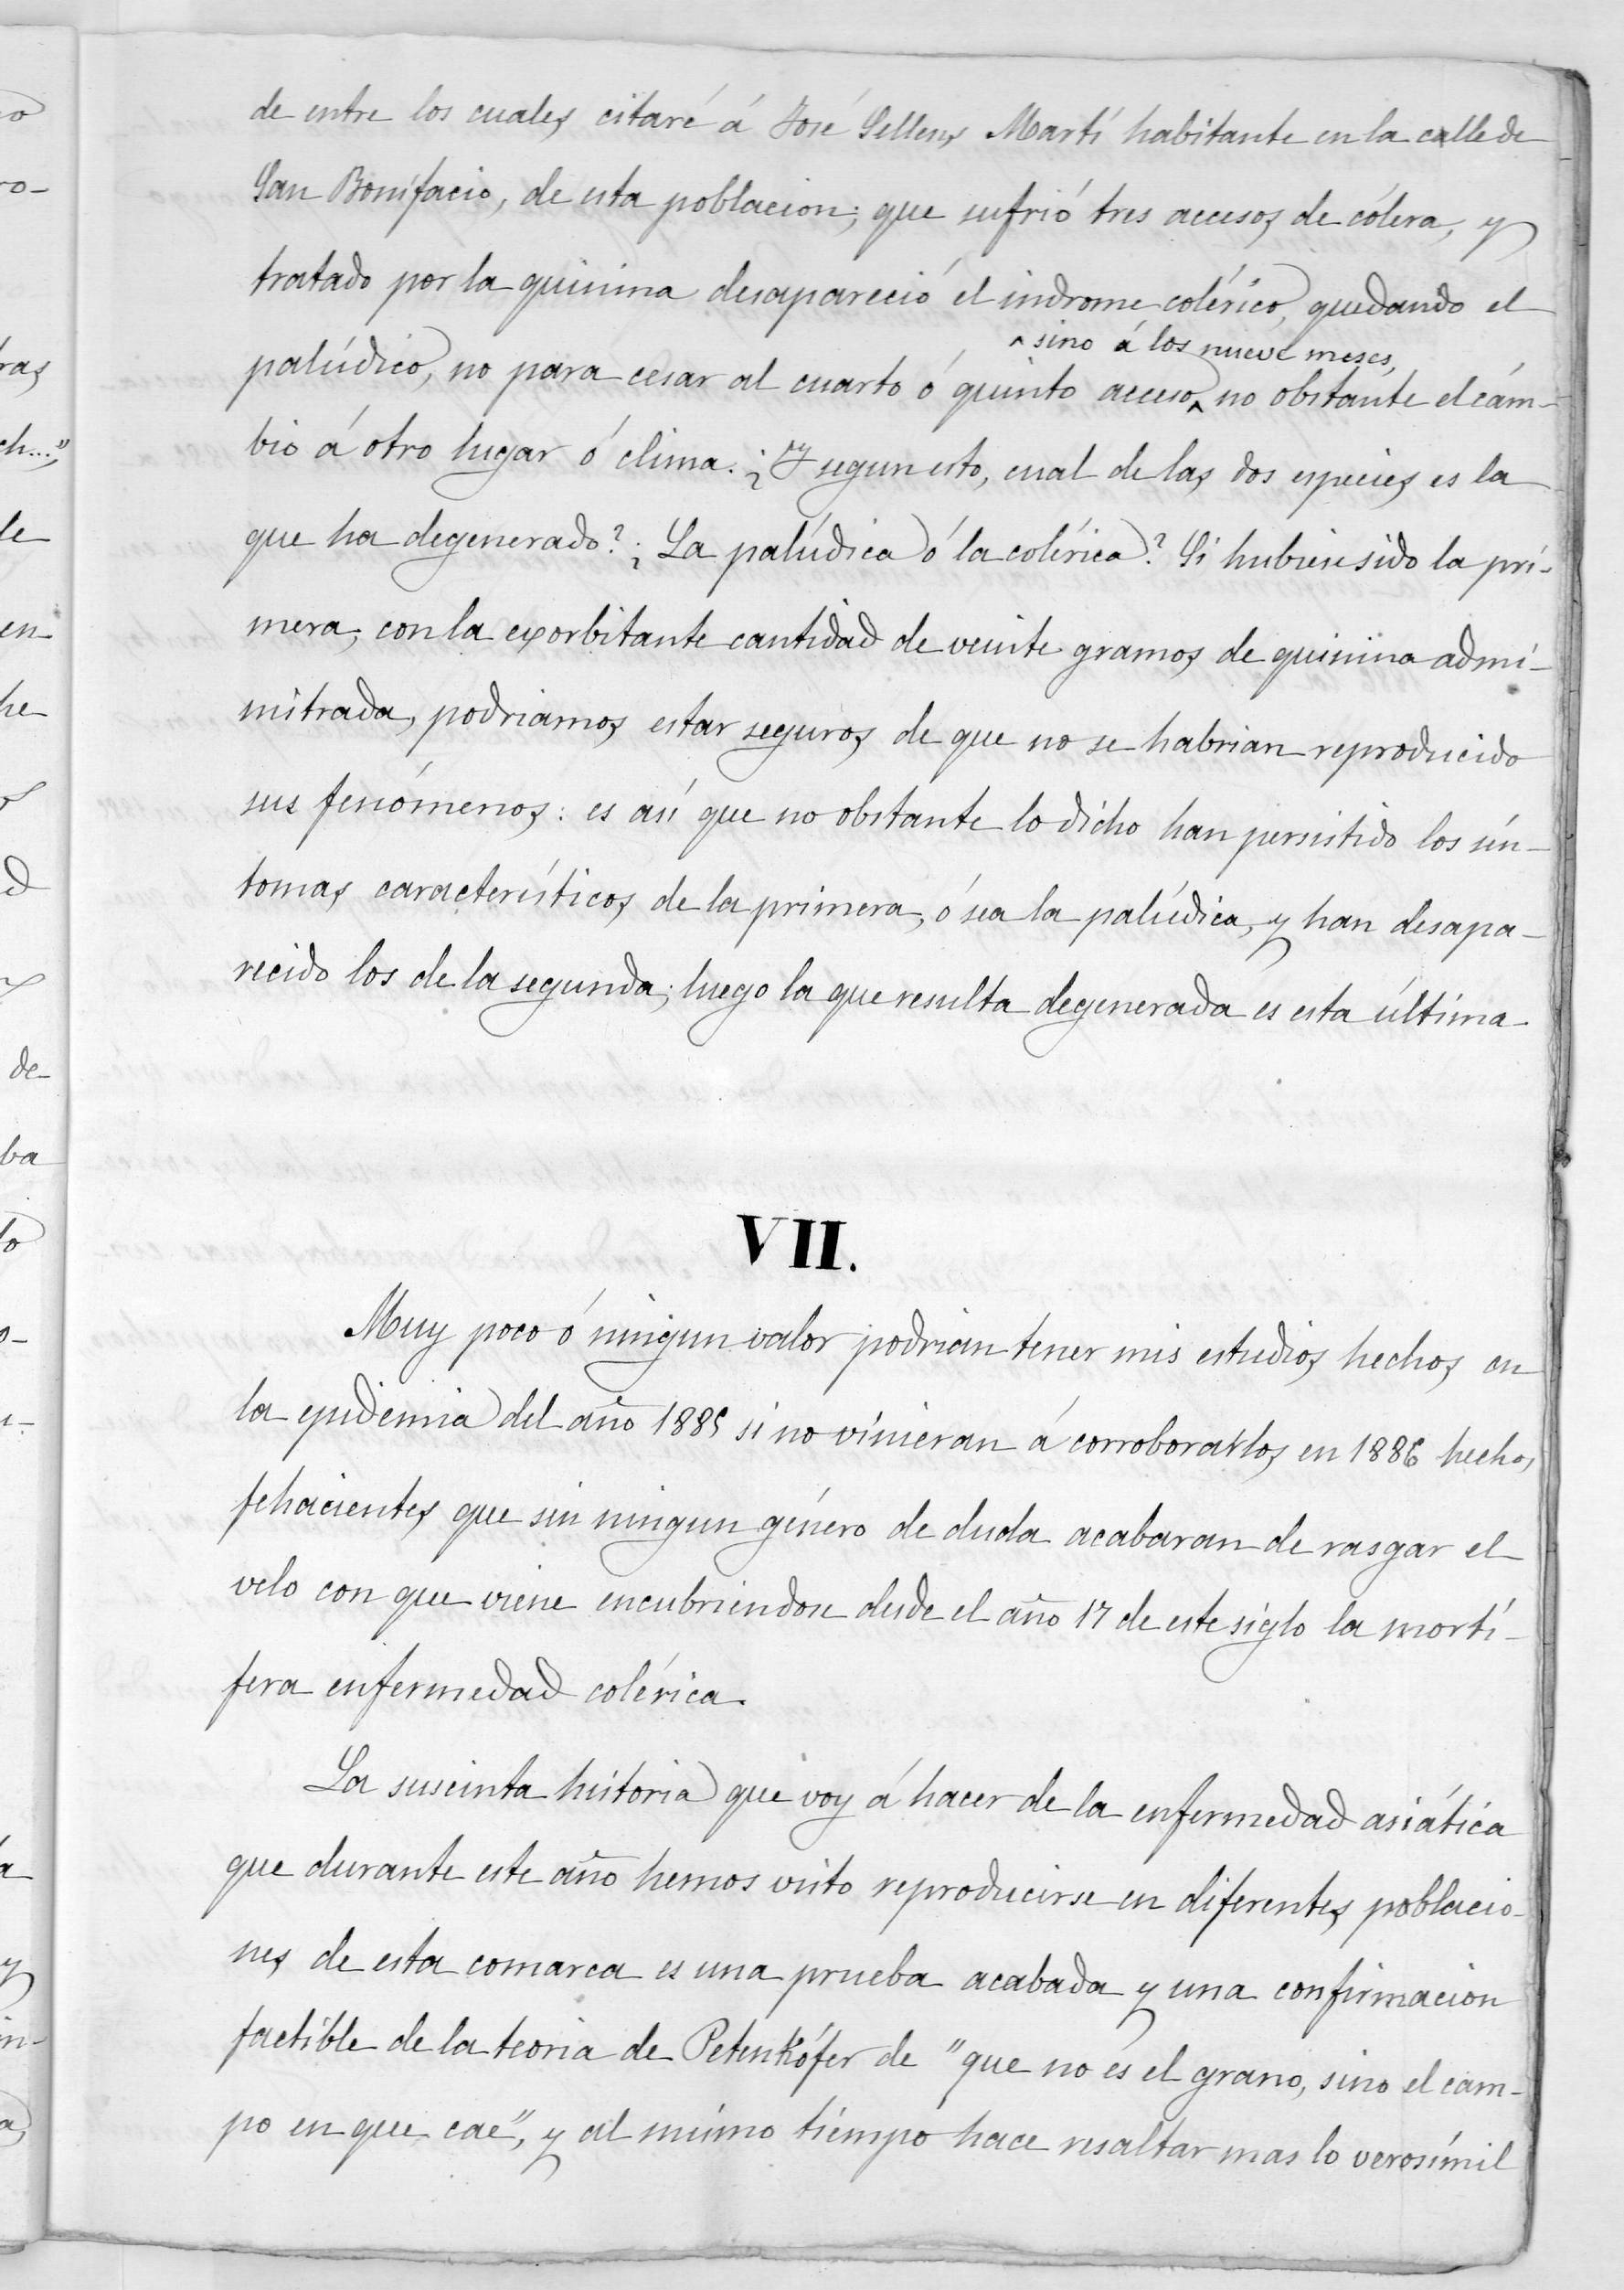 de entre los cuales citaré á José Sellens Martí habitante en la calle de
San Bonifacio, de esta poblacion; que sufrió tres accesos de cólera, y
tratado por la quinina desapareció el indrome colérico, quedando el
^ sino á los nueve meses,
palúdico, no para cesar al cuarto ó quinto acceso ^ no obstante el cám-
bio á otro lugar ó clima. ¿Y segun esto, cual de las dos especies es la
que ha degenerado? ¿La palúdica ó la colérica? Si hubiese sido la pri-
mera, con la exorbitante cantidad de veinte gramos de quinina admi-
nistrada, podriamos estar seguros de que no se habrian reproducido
sus fenómenos: es así que no obstante lo dicho han persistido los sín-
tomas característicos de la primera, ó sea la palúdica, y han desapa-
recido los de la segunda; luego la que resulta degenerada es esta última.
VII.
Muy poco ó ningun valor podrian tener mis estudios hechos en
la epidemia del año 1885 si no vinieran á corroborarlos en 1886 hechos
fehacientes que sin ningun género de duda acabaran de rasgar el
velo con que viene encubriendose desde el año 17 de este siglo la mortí-
fera enfermedad colérica.
La suscinta historia que voy á hacer de la enfermedad asiática
que durante este año hemos visto reproducirse en diferentes poblacio-
nes de esta comarca es una prueba acabada y una confirmacion
factible de la teoria de Petenkófer de "que no es el grano, sino el cam-
po en que cae", y al mismo tiempo hace resaltar mas lo verosímil